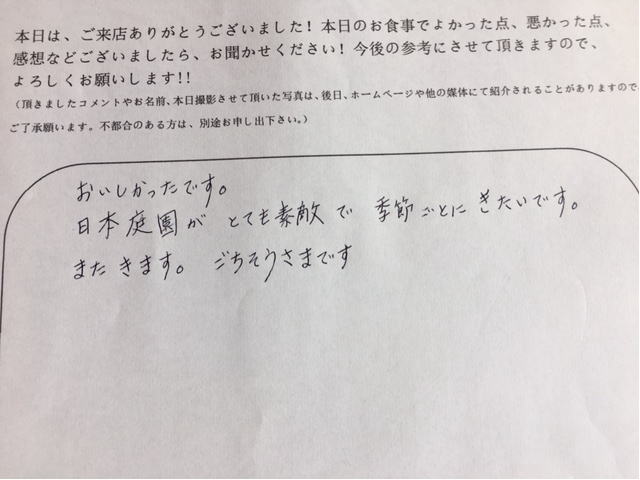 本日は、ご来店ありがとうございました！本日のお食事でよかった点、悪かった点、
感想などございましたら、お聞かせください！今後の参考にさせて頂きますので、
よろしくお願いします!!
（頂きましたコメントやお名前、本日撮影させて頂いた写真は、後日、ホームページや他の媒体にて紹介されることがありますので、
ご了承願います。不都合のある方は、別途お申し出下さい。）
おいしかったです。
日本庭園が とても素敵で 季節ごとに きたいです。
また きます。 ごちそうさまです